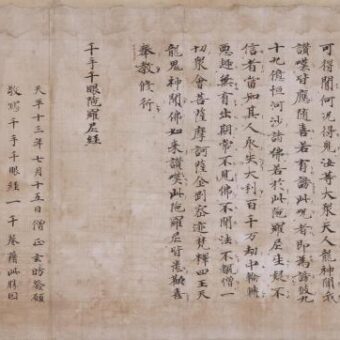 可得聞何況得見法等大衆天人龍神聞我
讃嘆皆應隨喜若有謗此呪者即為謗彼九
十九億恒河沙諸佛若於此陁羅尼生疑不
信者當知其人永失大利百千万劫中輪轉
惡趣無有出期常不見佛不聞法不覩僧一
切衆會菩薩摩訶薩金剛密迹梵釋四王天
龍鬼神聞佛如来讃嘆此陁羅尼皆悉歡喜
奉教修行
千手千眼陁羅尼経
天平十三年七月十五日僧正玄昉發願
敬寫千手千眼経一千巻藉此勝因